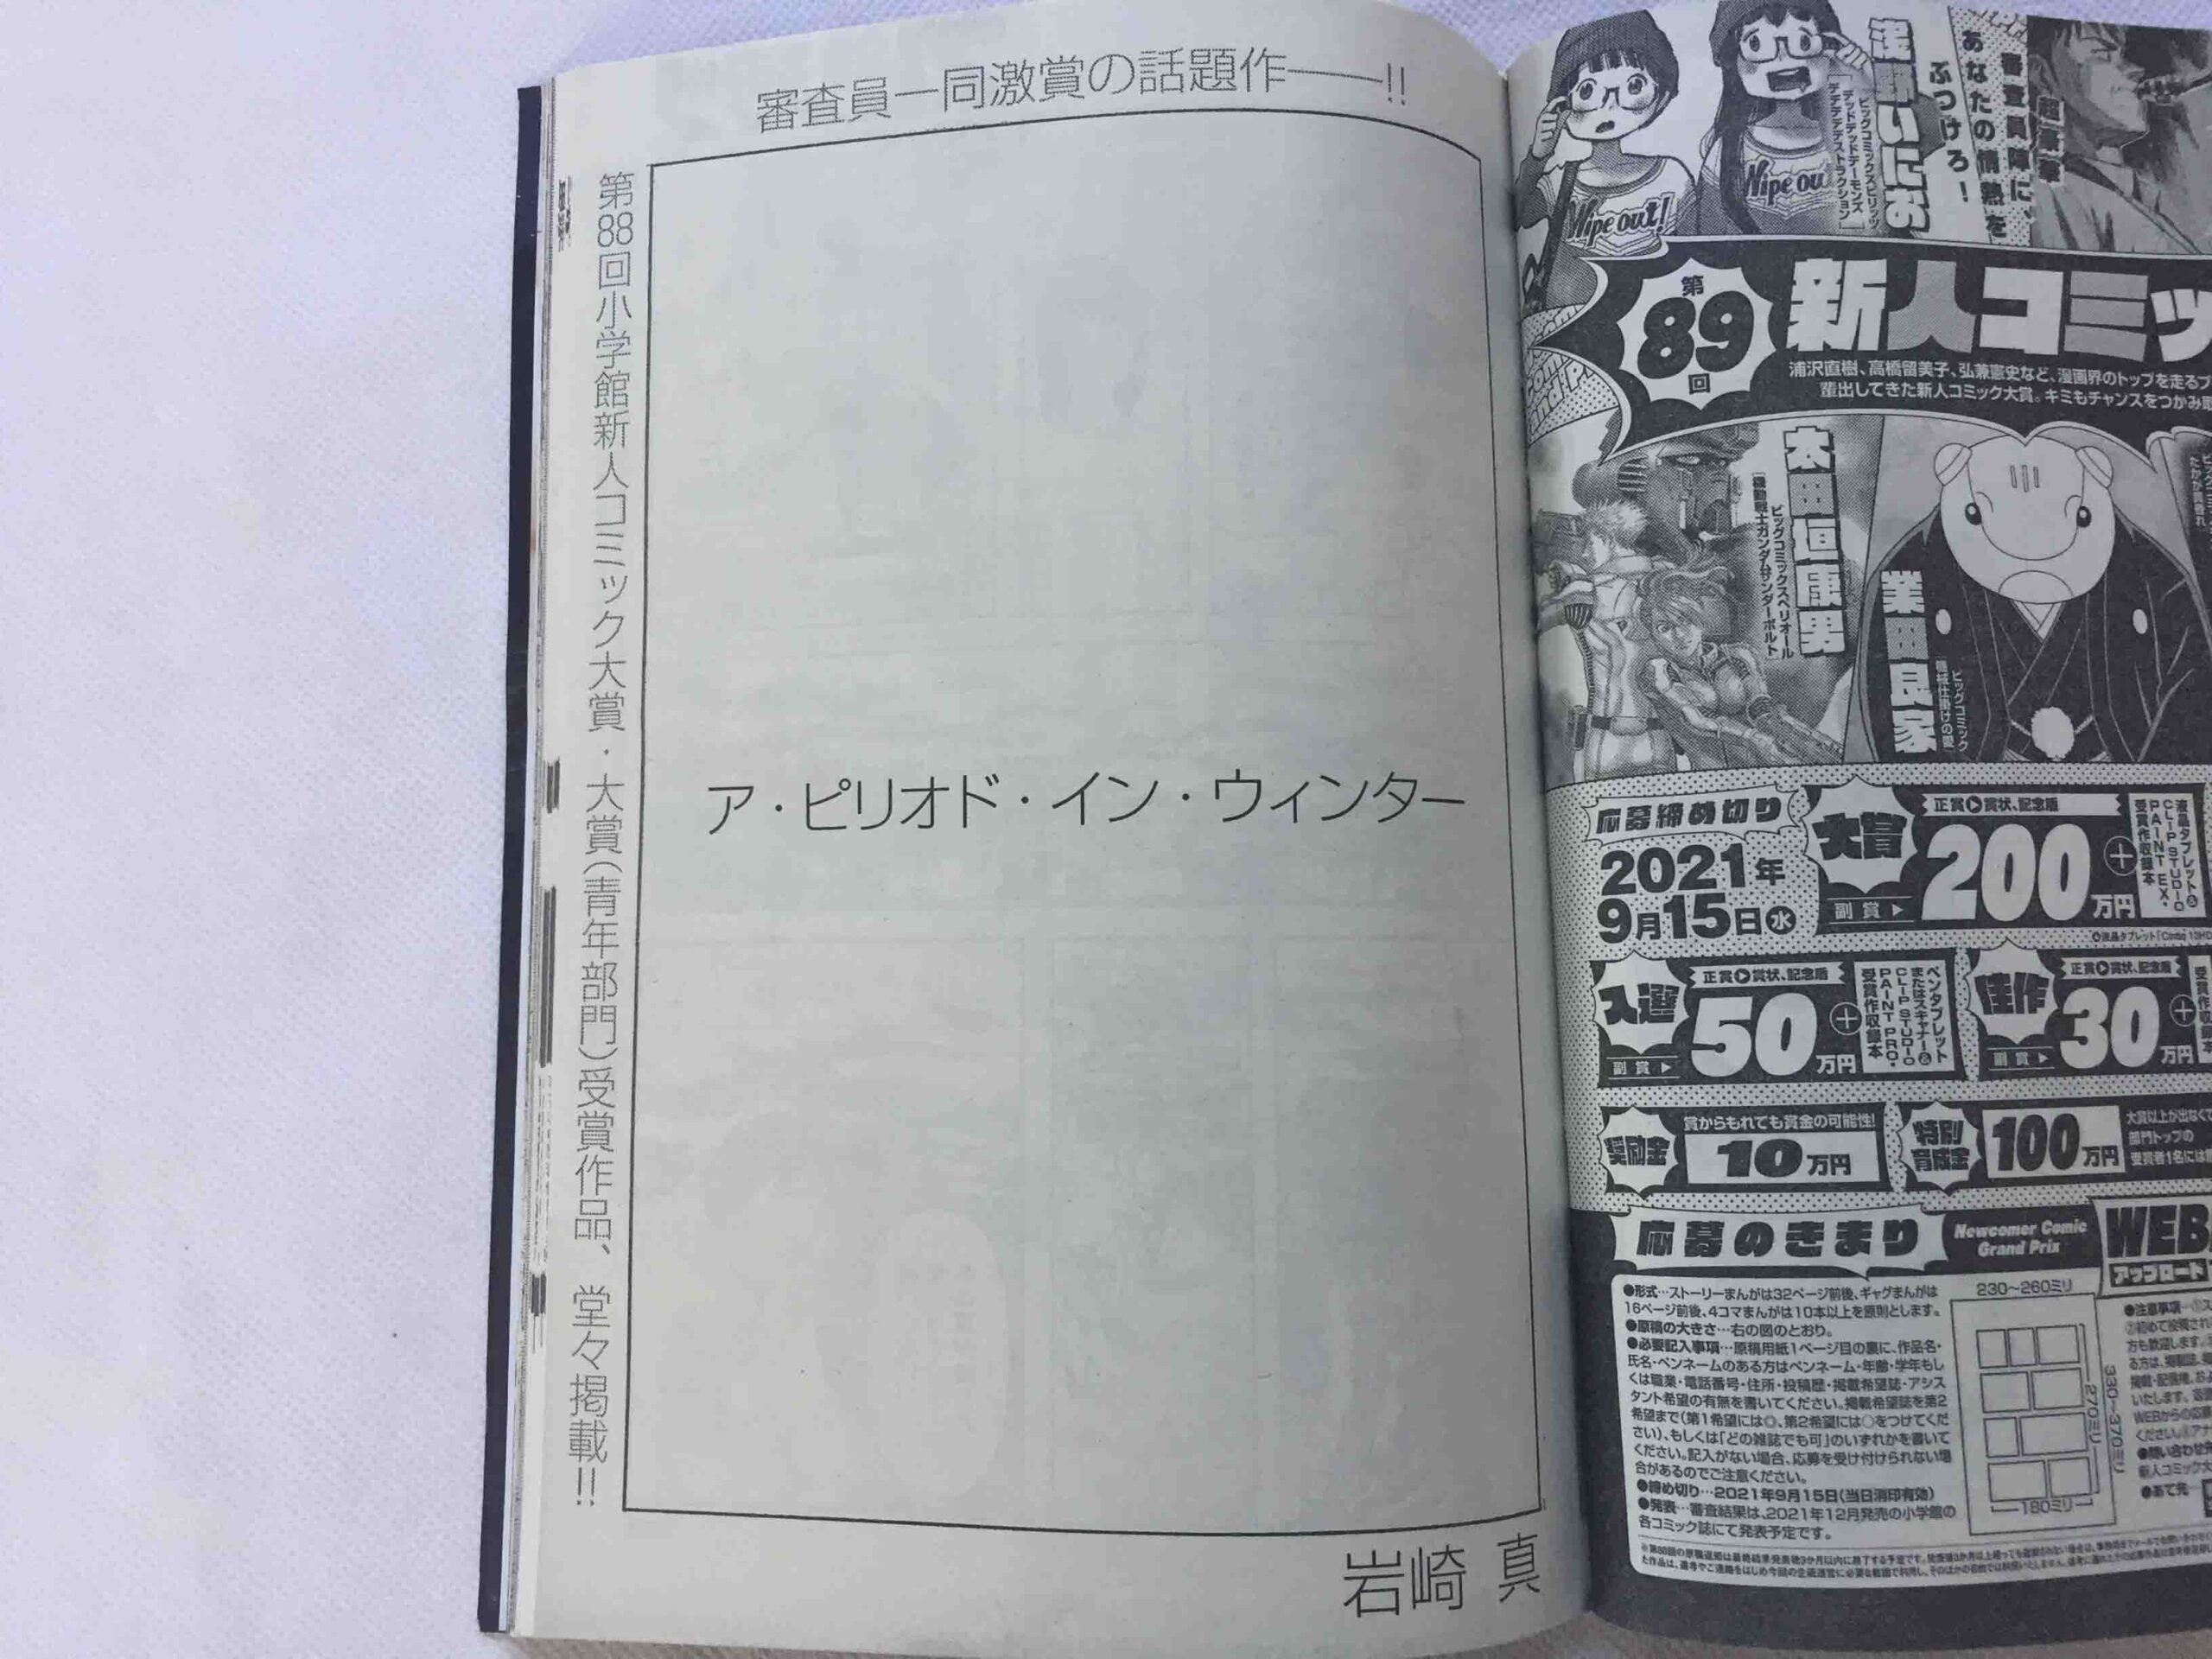 審査員一同激賞の話題作――!!
第88回小学館新人コミック大賞・大賞(青年部門)受賞作品、堂々掲載!!
ア・ピリオド・イン・ウィンター
岩崎 真
超豪華
審査員陣に、
あなたの情熱を
ぶつけろ!
浅野いにお
ビッグコミックスピリッツ
[デッドデッドデーモンズ
デデデデデストラクション]
Wipe out!
Wipe ou
第
89
回
新人コミッ
浦沢直樹、高橋留美子、弘兼憲史など、漫画界のトップを走るプ
輩出してきた新人コミック大賞。キミもチャンスをつかみ取
太田垣康男
ビッグコミックスペリオール
[機動戦士ガンダムサンダーボルト]
業田良家
ビッグコミック
機械仕掛けの愛
応募締め切り
2021年
9月15日㊌
大賞
正賞▶賞状、記念盾
副賞▶
200万円
+
液晶タブレット&
CLIP STUDIO
PAINT EX・
受賞作収録本
入選
正賞▶賞状、記念盾
副賞▶
50万円
+
ペンタブレット
またはスキャナー&
CLIP STUDIO
PAINT PRO・
受賞作収録本
佳作
正賞▶賞状、記念盾
副賞▶
30万円
+
奨励金
賞からもれても賞金の可能性!
10万円
特別
育成金
100万円
大賞以上が出なくて
部門トップの
受賞者1名には
応募のきまり
Newcomer Comic
Grand Prix
WEB
アップロード
●形式…ストーリーまんがは32ページ前後、ギャグまんがは
16ページ前後、4コマまんがは10本以上を原則とします。
●原稿の大きさ…右の図のとおり。
●必要記入事項…原稿用紙1ページ目の裏に、作品名・
氏名・ペンネームのある方はペンネーム・年齢・学年もし
くは職業・電話番号・住所・投稿歴・掲載希望誌・アシス
タント希望の有無を書いてください。掲載希望誌を第2
希望まで(第1希望には◎、第2希望には○をつけてくだ
さい)、もしくは「どの雑誌でも可」のいずれかを書いて
ください。記入がない場合、応募を受け付けられない場
合があるのでご注意ください。
●締め切り…2021年9月15日(当日消印有効)
●発表…審査結果は、2021年12月発売の小学館の
各コミック誌にて発表予定です。
230~260ミリ
270ミリ
330~370ミリ
180ミリ
●注意事項